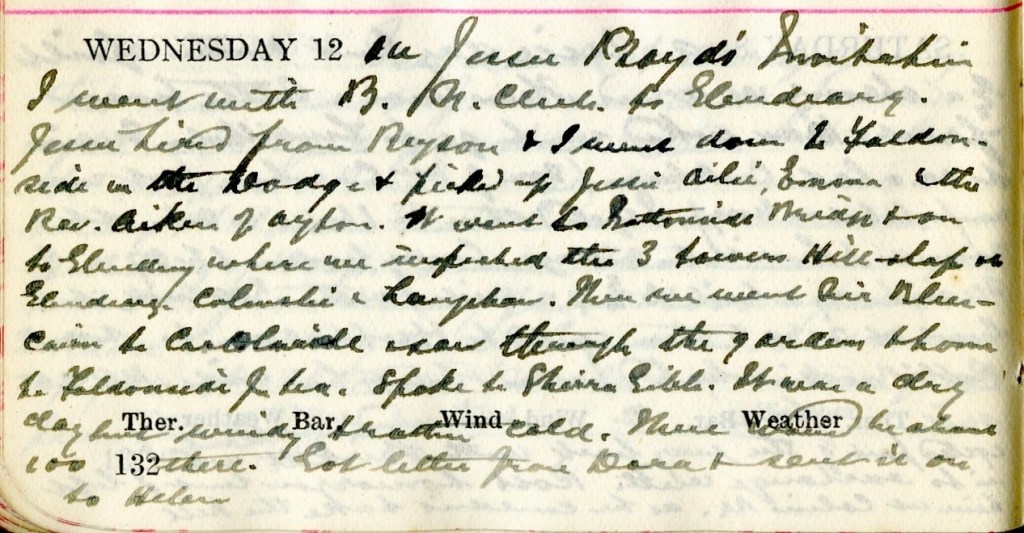 WEDNESDAY 12 on Jessie Boyd's Invitation
I went with B. N. Club. to Elwndearg.
Jessie hired from Bryson & I went down to Faldon-
side in the Dodge & picked up Jessie Ailie, Emma & the
Rev. Aiken of Ayton. We went to Bottomside Bridge & on
to where we inspected the 3 towers Hill-slap or
Colmslie & Langshaw. Then we went via Blue-
cairn to Carolside & saw through the gardens & home
to Faldonside for tea. Spoke to Sheriff Gibb. It was a dry
day but windy & rather cold. There would be about
Ther. Bar. Wind Weather
100 there. Got letter from Dora & sent it on
132
to Helen